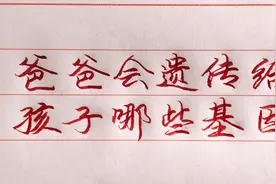 爸爸会遗传给
孩子哪些基因